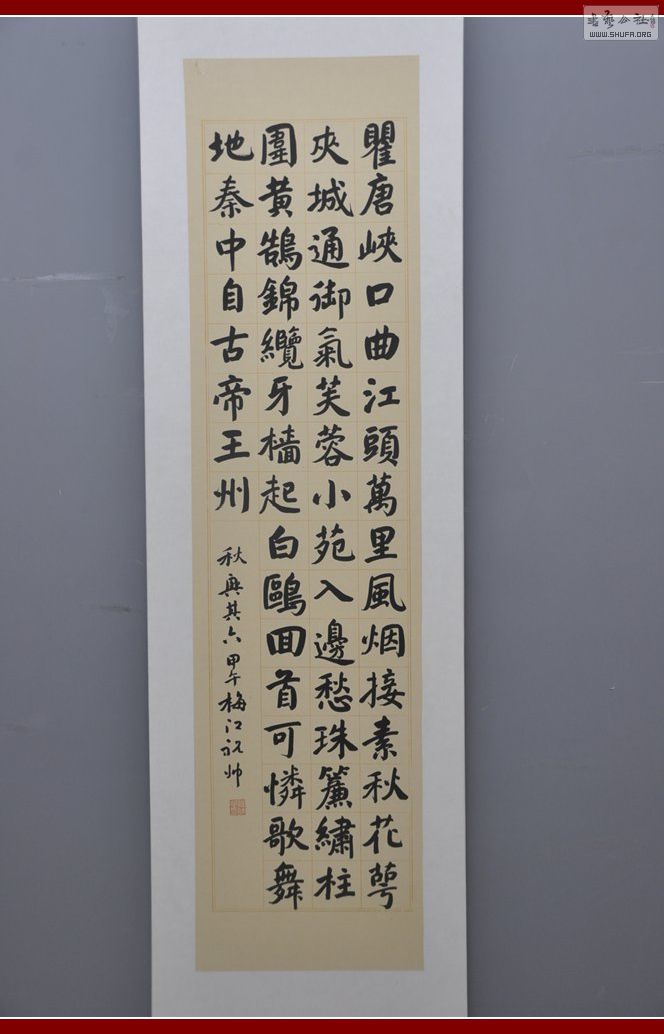 瞿唐峽口曲江頭萬里風烟接素秋花萼
夾城通御氣芙蓉小苑入邊愁珠簾繡柱
圍黃鵠錦纜牙檣起白鷗回首可憐歌舞
地秦中自古帝王州
秋興其六甲午梅江祝帅
書藝公社
WWW.SHUFA.ORG